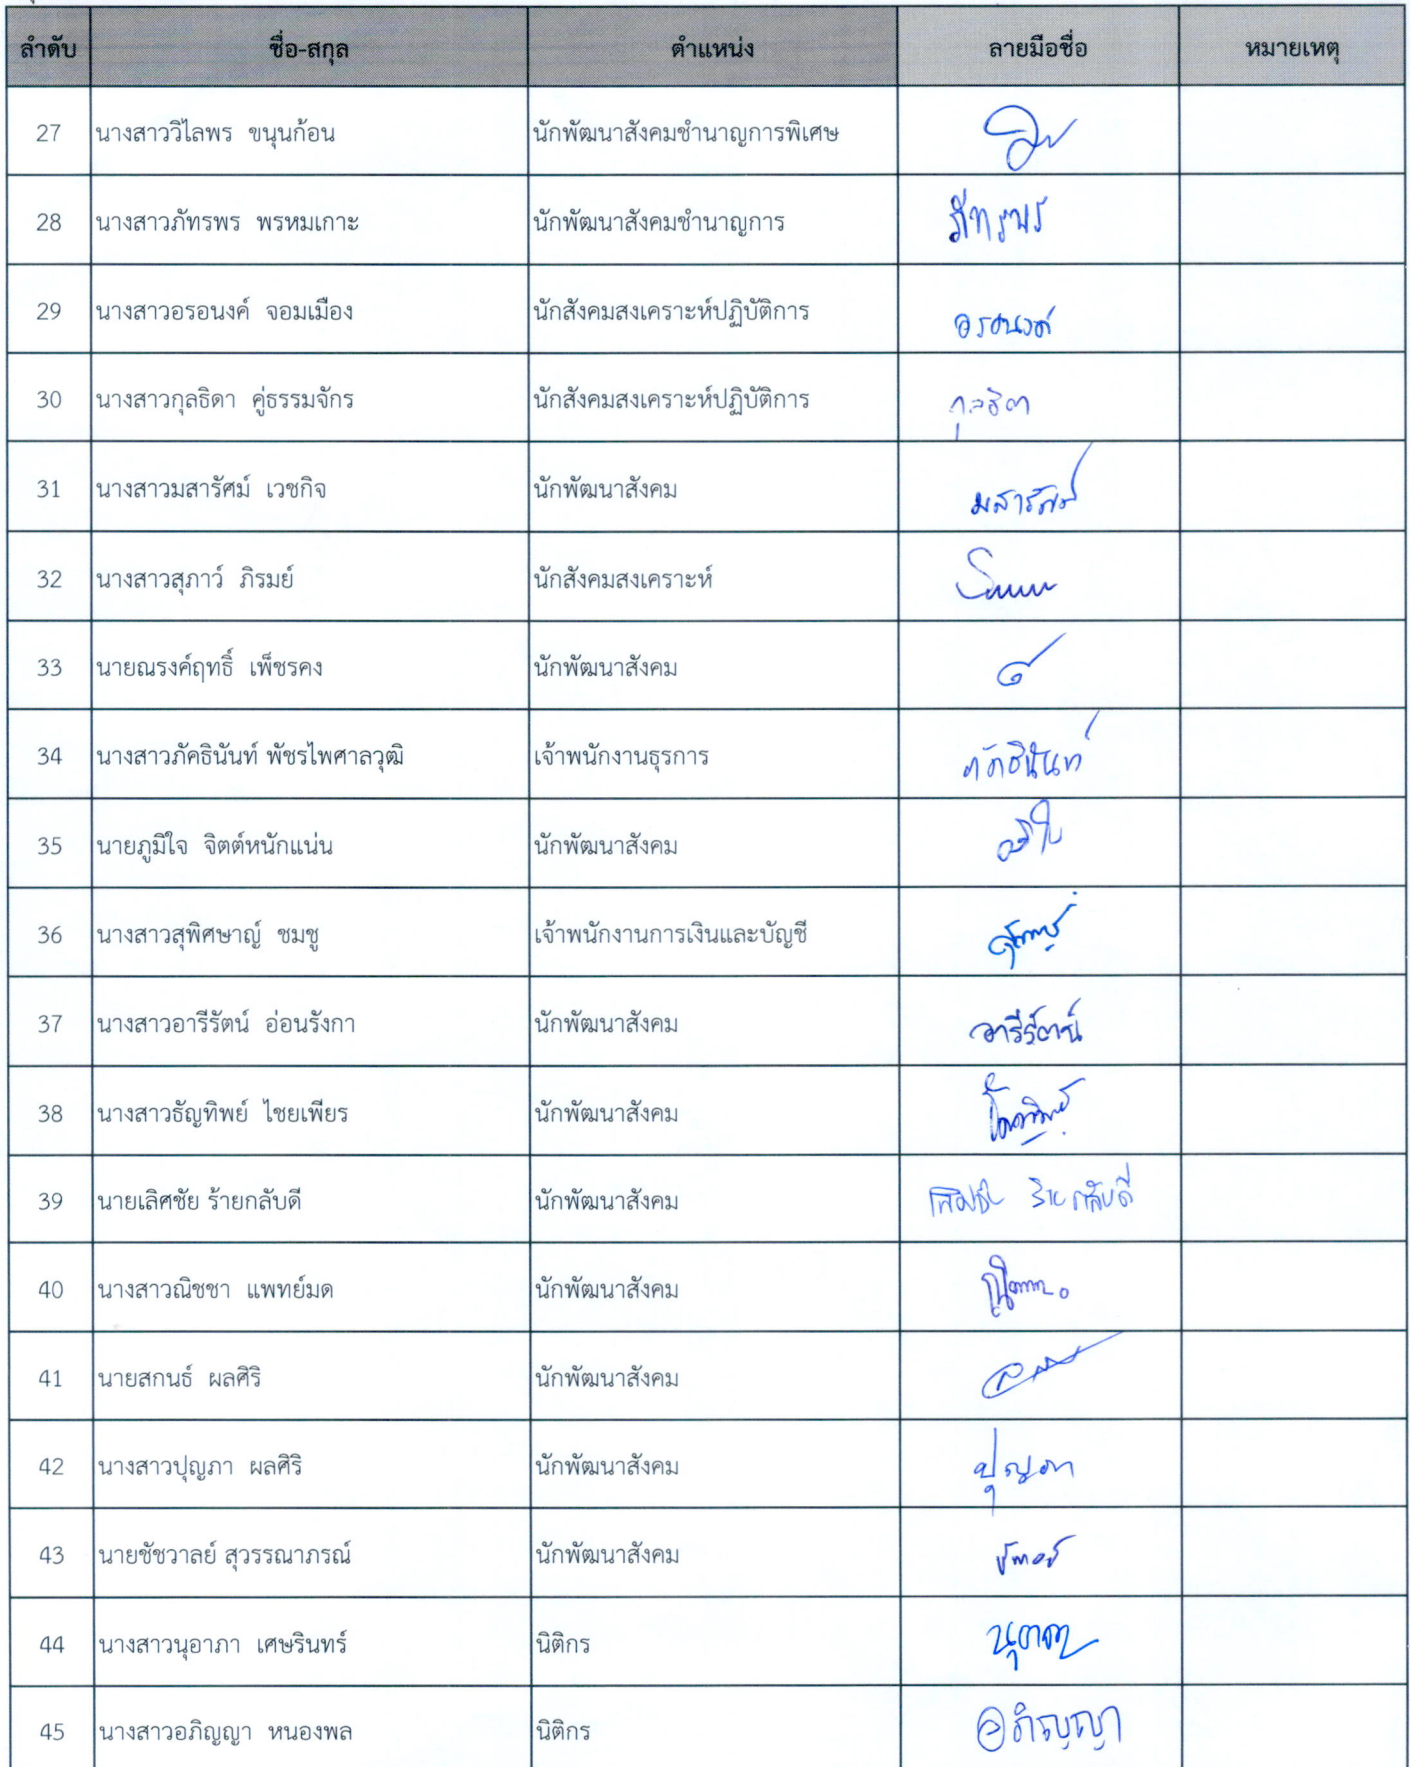 ลำดับ ชื่อ-สกุล ตำแหน่ง ลายมือชื่อ หมายเหตุ
27 นางสาววิไลพร ขนุนก้อน นักพัฒนาสังคมชำนาญการพิเศษ
28 นางสาวภัทรพร พรหมเกาะ นักพัฒนาสังคมชำนาญการ ภัทรพร
29 นางสาวอรอนงค์ จอมเมือง นักสังคมสงเคราะห์ปฏิบัติการ อรอนงค์
30 นางสาวกุลธิดา คู่ธรรมจักร นักสังคมสงเคราะห์ปฏิบัติการ กุลธิดา
31 นางสาวมสารัศม์ เวชกิจ นักพัฒนาสังคม มสารัศม์
32 นางสาวสุภาว์ ภิรมย์ นักสังคมสงเคราะห์
33 นายณรงค์ฤทธิ์ เพ็ชรคง นักพัฒนาสังคม
34 นางสาวภัคธินันท์ พัชรไพศาลวุฒิ เจ้าพนักงานธุรการ ภัคธินันท์
35 นายภูมิใจ จิตต์หนักแน่น นักพัฒนาสังคม
36 นางสาวสุพิศษาญ์ ชมชู เจ้าพนักงานการเงินและบัญชี
37 นางสาวอารีรัตน์ อ่อนรังกา นักพัฒนาสังคม อารีรัตน์
38 นางสาวธัญทิพย์ ไชยเพียร นักพัฒนาสังคม
39 นายเลิศชัย ร้ายกลับดี นักพัฒนาสังคม เลิศชัย ร้ายกลับดี
40 นางสาวณิชชา แพทย์มด นักพัฒนาสังคม
41 นายสกนธ์ ผลศิริ นักพัฒนาสังคม
42 นางสาวปุญภา ผลศิริ นักพัฒนาสังคม ปุญภา
43 นายชัชวาลย์ สุวรรณาภรณ์ นักพัฒนาสังคม
44 นางสาวนุอาภา เศษรินทร์ นิติกร
45 นางสาวอภิญญา หนองพล นิติกร อภิญญา